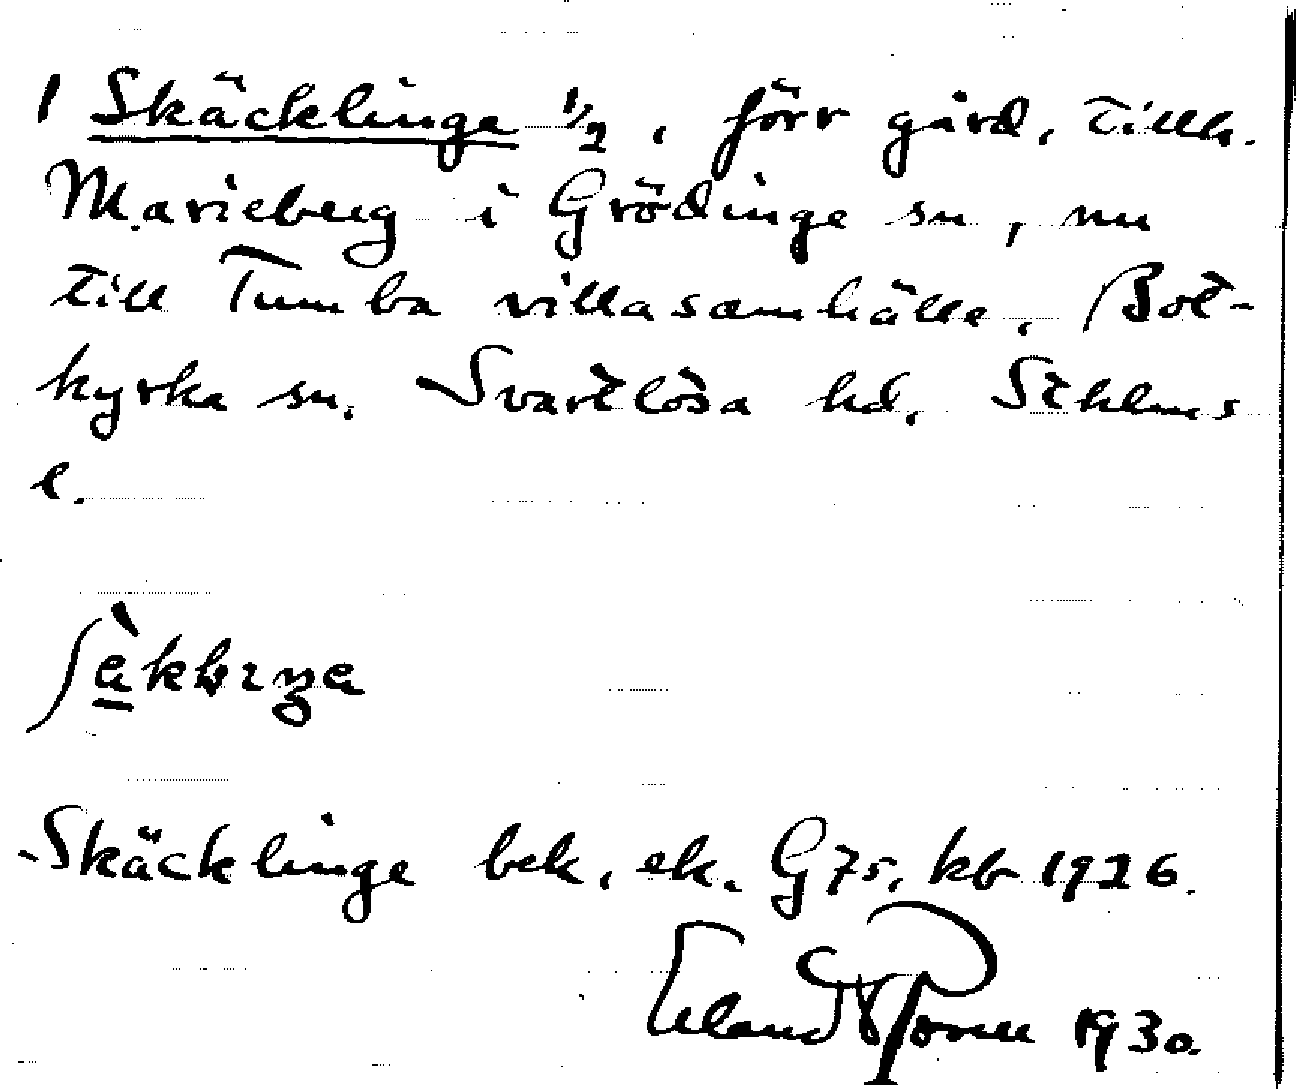 1 Skäcklinge 1/2, förr gård, tillh.
Marieberg i Grödinge sn, nu
till Tumba villasamhälle, Bot-
kyrka sn. Svartlösa hd. Sthlms
l.
Skäcklinge bek. ek. G75, kb 1926.
Erland 1930.